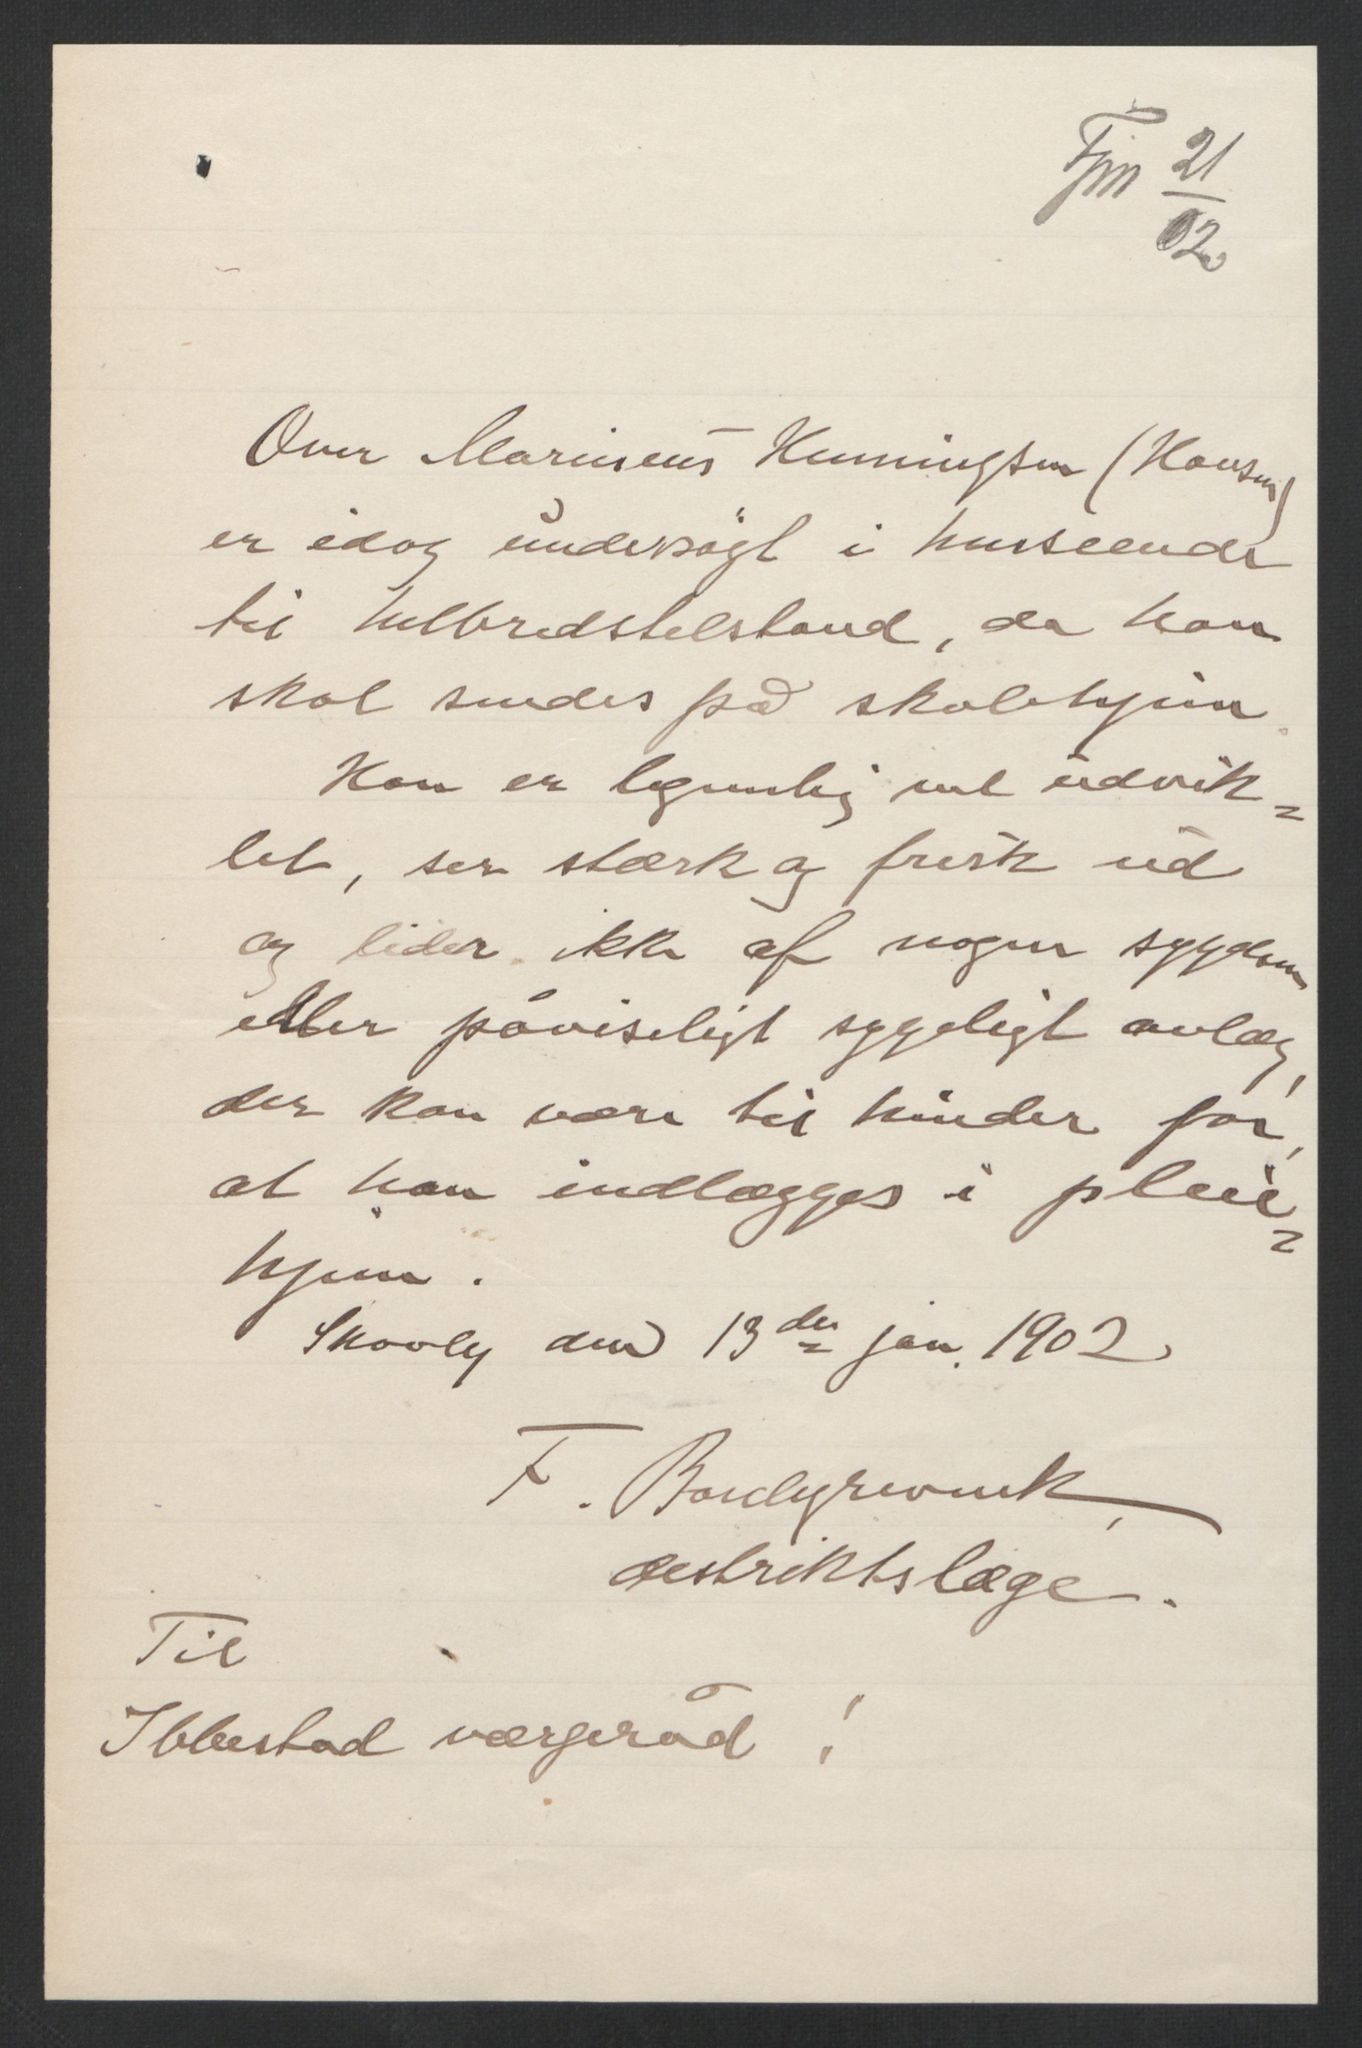 Fjm 21/02
Over Marinius Henningsen (Hansen)
er idag undersøgt i henseende
til helbredstilstand, da han
skal sendes på skolehjem.
Han er legemlig vel udvik=
let, ser stærk og frisk ud
og lider ikke af nogen sygdom
eller påviseligt sygeligt anlæg,
der kan være til hinder for,
at han indlægges i pleie=
hjem.
den 13de jan. 1902
F.
distriktslæge.
Til
Ibbestad værgeråd!